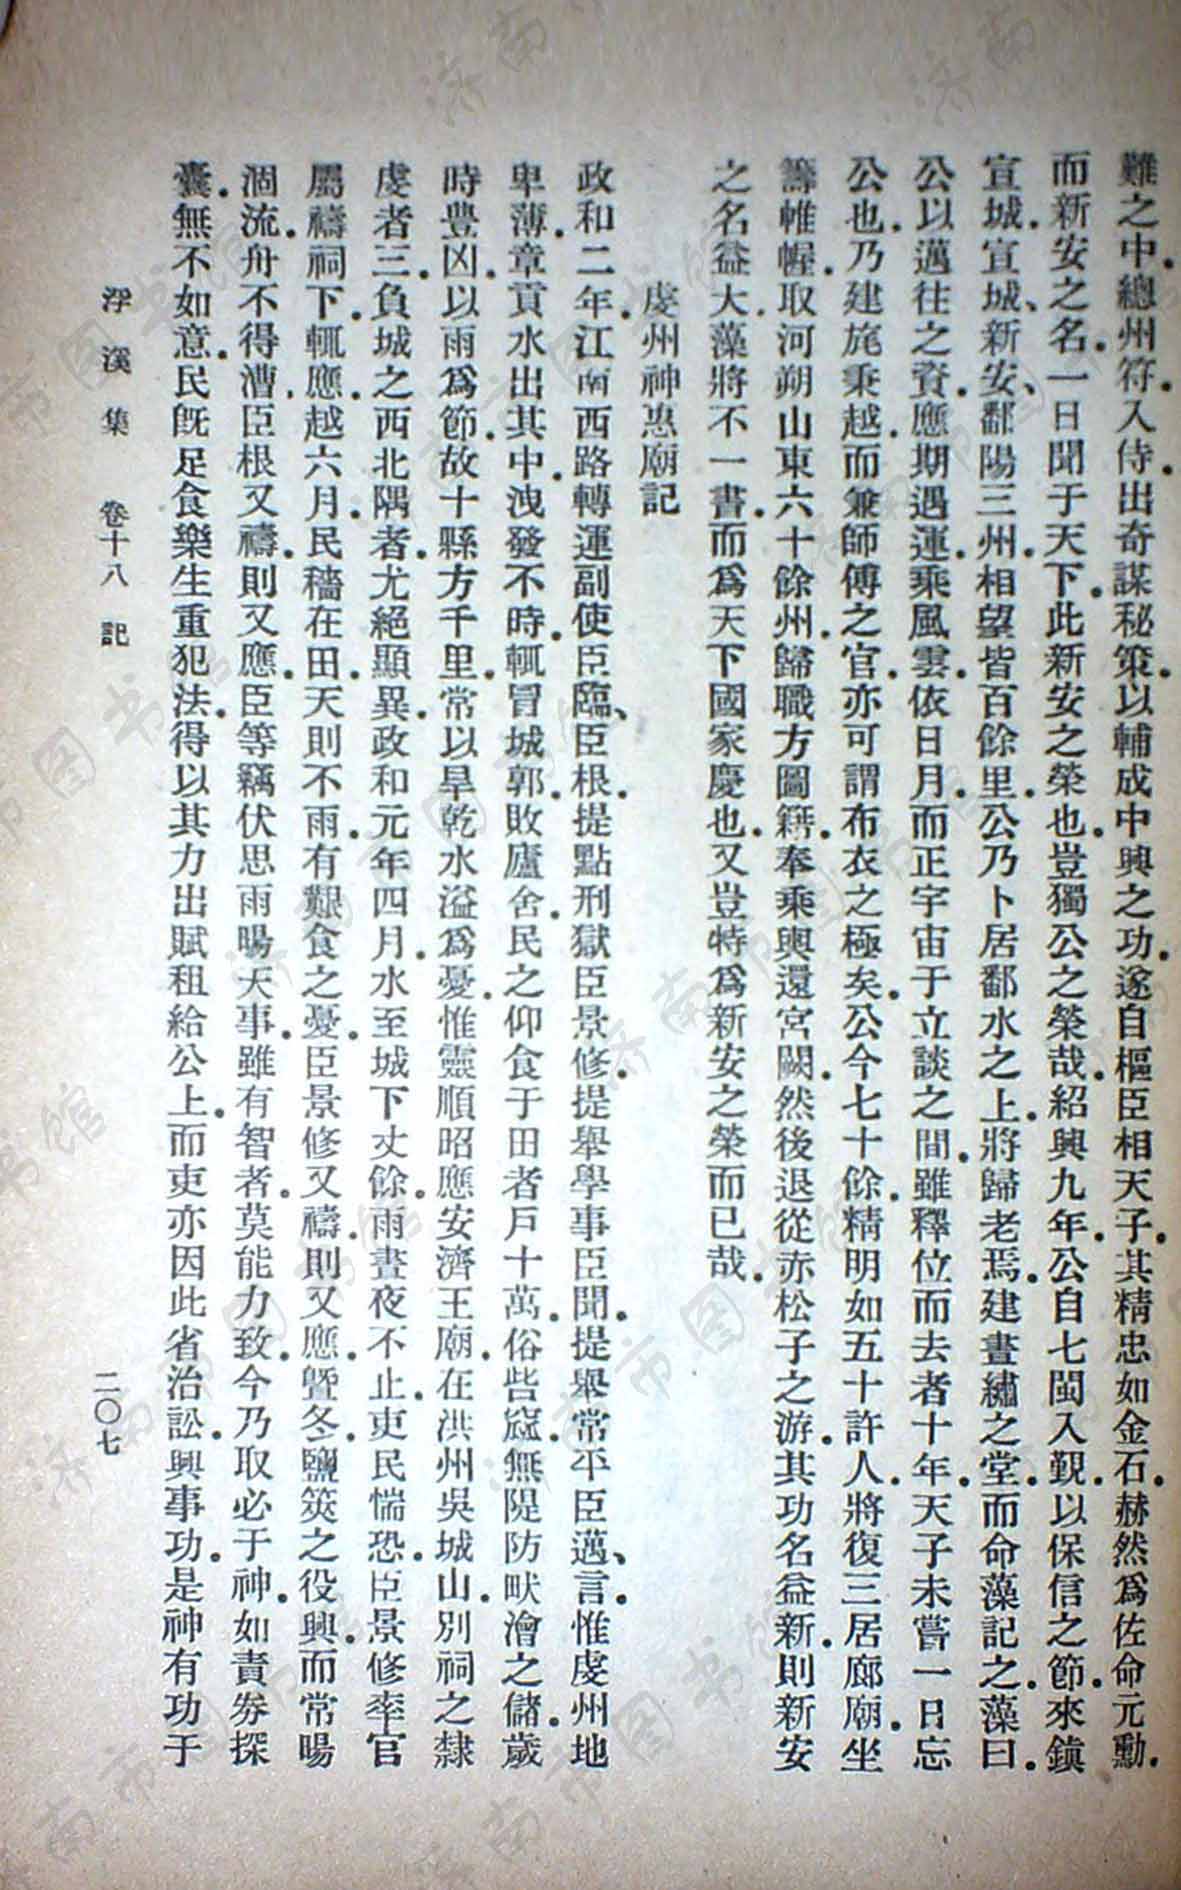 難之中.總州符.入侍.出奇謀秘策.以輔成中興之功.遂自樞臣相天子.其精忠如金石.赫然爲佐命元勳.
而新安之名.一日聞于天下.此新安之榮也.豈獨公之榮哉.紹興九年.公自七閩入覲.以保信之節.來鎭
宣城.宣城、新安、鄱陽三州.相望皆百餘里.公乃卜居鄱水之上.將歸老焉.建晝繡之堂.而命藻記之.藻曰.
公以邁往之資.應期遇運.乘風雲.依日月.而正宇宙于立談之間.雖釋位而去者十年.天子未嘗一日忘
公也.乃建旄秉越.而兼師傅之官.亦可謂布衣之極矣.公今七十餘.精明如五十許人.將復三居廊廟.坐
籌帷幄.取河朔山東六十餘州.歸職方圖籍.奉乘輿還宮闕.然後退從赤松子之游.其功名益新.則新安
之名益大.藻將不一書.而爲天下國家慶也.又豈特爲新安之榮而已哉.
虔州神惠廟記
政和二年.江南西路轉運副使臣臨、臣根.提點刑獄臣景修.提舉學事臣聞.提舉常平臣邁、言.惟虔州地
卑薄.章貢水出其中.洩發不時.輒冒城郭.敗廬舍.民之仰食于田者戶十萬.俗呰窳.無隄防畎澮之儲.歲
時豐凶.以雨爲節.故十縣方千里.常以旱乾水溢爲憂.惟靈順昭應安濟王廟.在洪州吳城山.別祠之隸
虔者三.負城之西北隅者.尤絕顯異.政和元年四月.水至城下丈餘.雨晝夜不止.吏民惴恐.臣景修率官
屬禱祠下.輒應.越六月.民穡在田.天則不雨.有艱食之憂.臣景修又禱.則又應.曁冬.鹽筴之役興.而常暘
涸流.舟不得漕.臣根又禱.則又應.臣等竊伏思雨暘天事.雖有智者.莫能力致.今乃取必于神.如責券探
囊.無不如意.民旣足食樂生重犯法.得以其力出賦租給公上.而吏亦因此省治訟.興事功.是神有功于
浮溪集 卷十八 記
二〇七